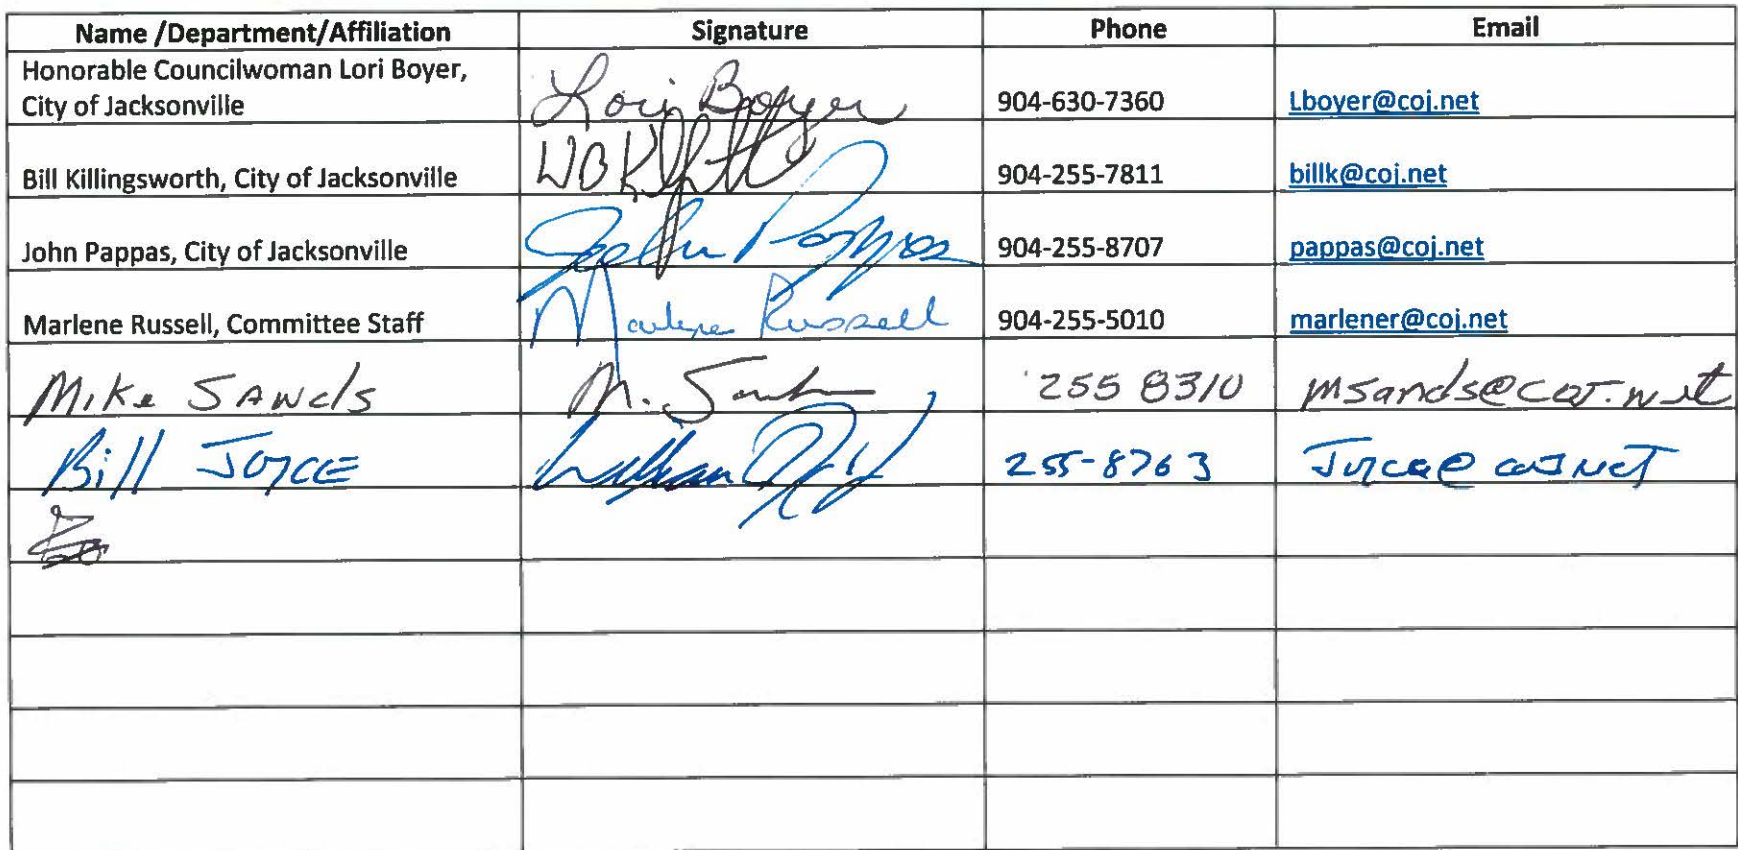 Name /Department/Affiliation Signature Phone Email
Honorable Councilwoman Lori Boyer,
City of Jacksonville Lori Boyer 904-630-7360 Lboyer@coj.net
Bill Killingsworth, City of Jacksonville 904-255-7811 billk@coj.net
John Pappas, City of Jacksonville John Pappas 904-255-8707 pappas@coj.net
Marlene Russell, Committee Staff Marlene Russell 904-255-5010 marlener@coj.net
Mike Sands M. 255 8310 msands@coj.net
Bill Joyce William 255-8763 Joyce@coj.net